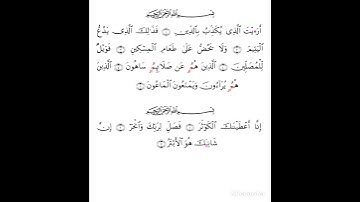 بِسْمِ ٱللَّهِ ٱلرَّحْمَٰنِ ٱلرَّحِيمِ
أَرَءَيْتَ ٱلَّذِى يُكَذِّبُ بِٱلدِّينِ ۝ فَذَٰلِكَ ٱلَّذِى يَدُعُّ
ٱلْيَتِيمَ ۝ وَلَا يَحُضُّ عَلَىٰ طَعَامِ ٱلْمِسْكِينِ ۝ فَوَيْلٌ
لِّلْمُصَلِّينَ ۝ ٱلَّذِينَ هُمُۥ عَن صَلَاتِهِمُۥ سَاهُونَ ۝ ٱلَّذِينَ
هُمُۥ يُرَآءُونَ وَيَمْنَعُونَ ٱلْمَاعُونَ ۝
بِسْمِ ٱللَّهِ ٱلرَّحْمَٰنِ ٱلرَّحِيمِ
إِنَّآ أَعْطَيْنَٰكَ ٱلْكَوْثَرَ ۝ فَصَلِّ لِرَبِّكَ وَٱنْحَرْ ۝ إِنَّ
شَانِئَكَ هُوَ ٱلْأَبْتَرُ ۝